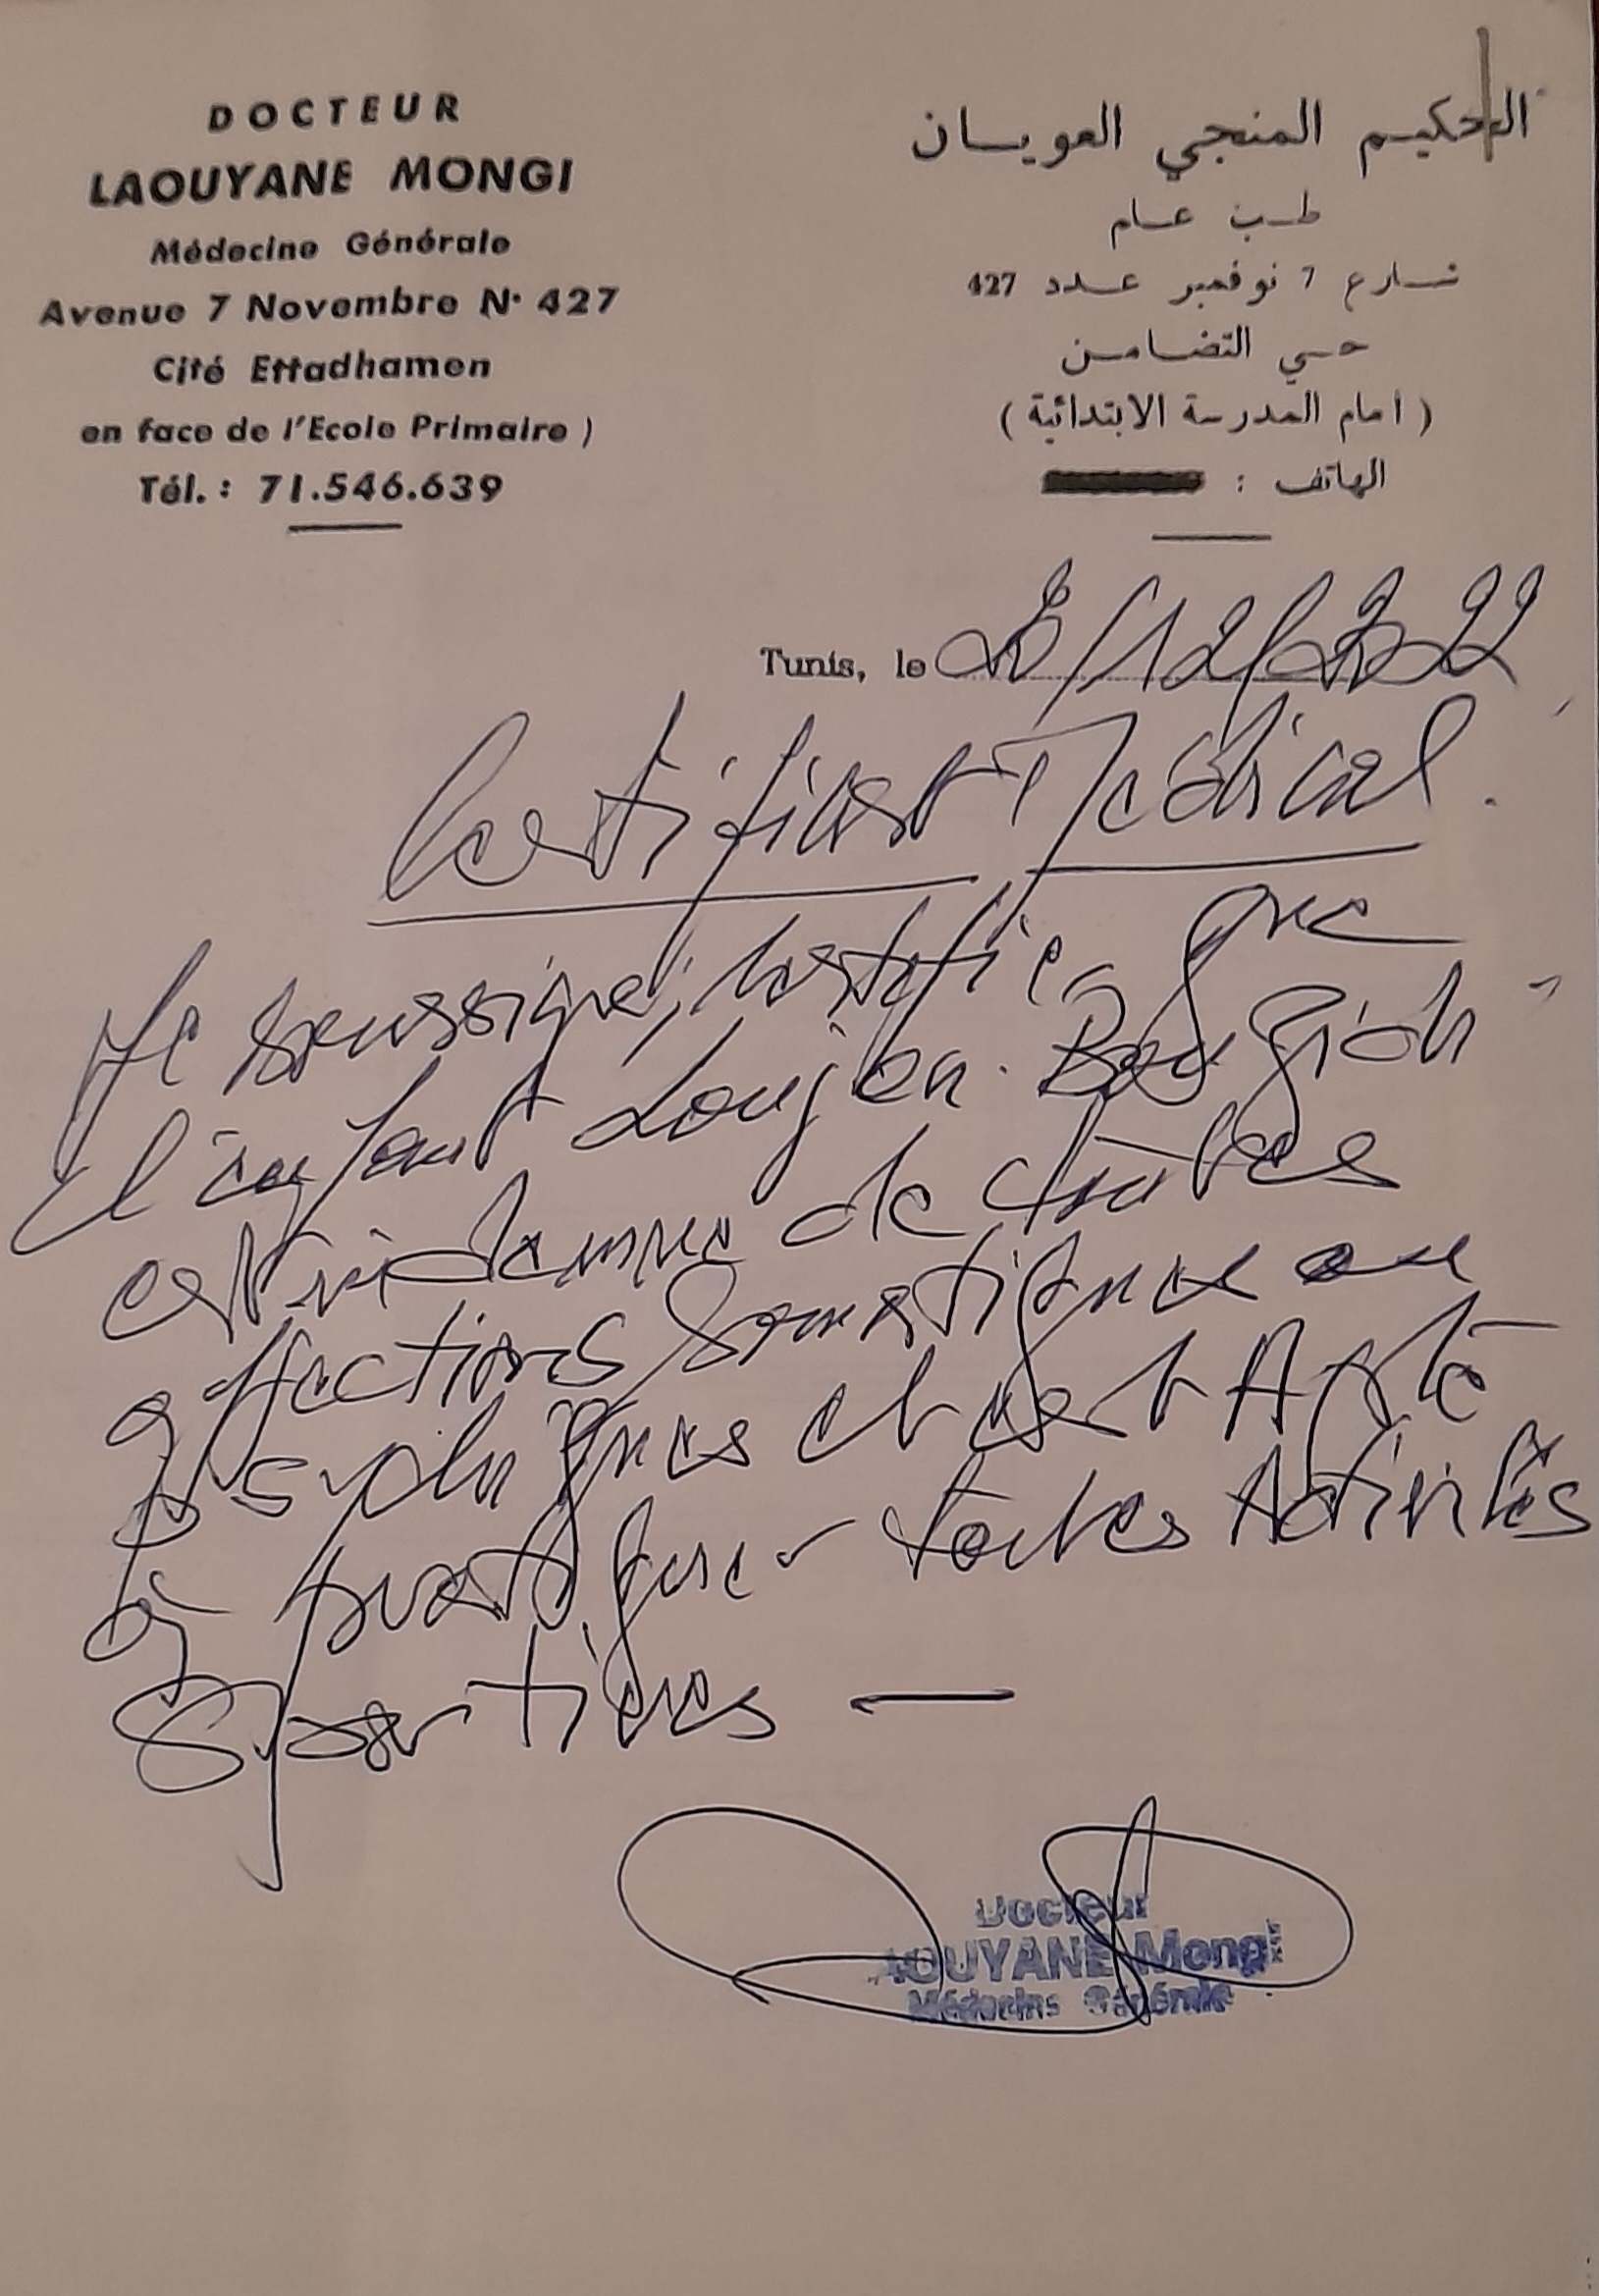 DOCTEUR
LAOUYANE MONGI
Médecine Générale
Avenue 7 Novembre N° 427
Cité Ettadhamen
en face de l'Ecole Primaire )
Tél. : 71.546.639
الحكيم المنجي العويسان
طب عام
شارع 7 نوفمبر عدد 427
حي التضامن
( امام المدرسة الابتدائية )
الهاتف :
Tunis, le /12/2022
Certificat Médical.
Je soussigné, certifie que
l'enfant Loujen
est indemne de toutes
affections somatiques ou
psychiques et est Apte
à pratiquer toutes Activités
Sportives —
Docteur
AOUYANE Mongi
Médecine Générale